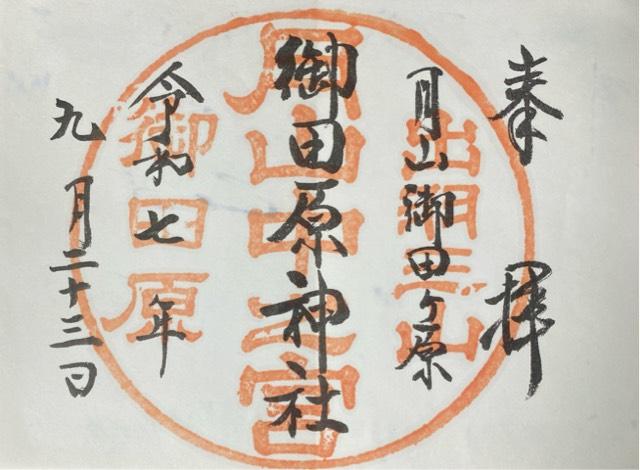 奉拝
月山御田ヶ原
御田原神社
令和七年
九月二十三日
出羽三山
月山中之宮
御田原